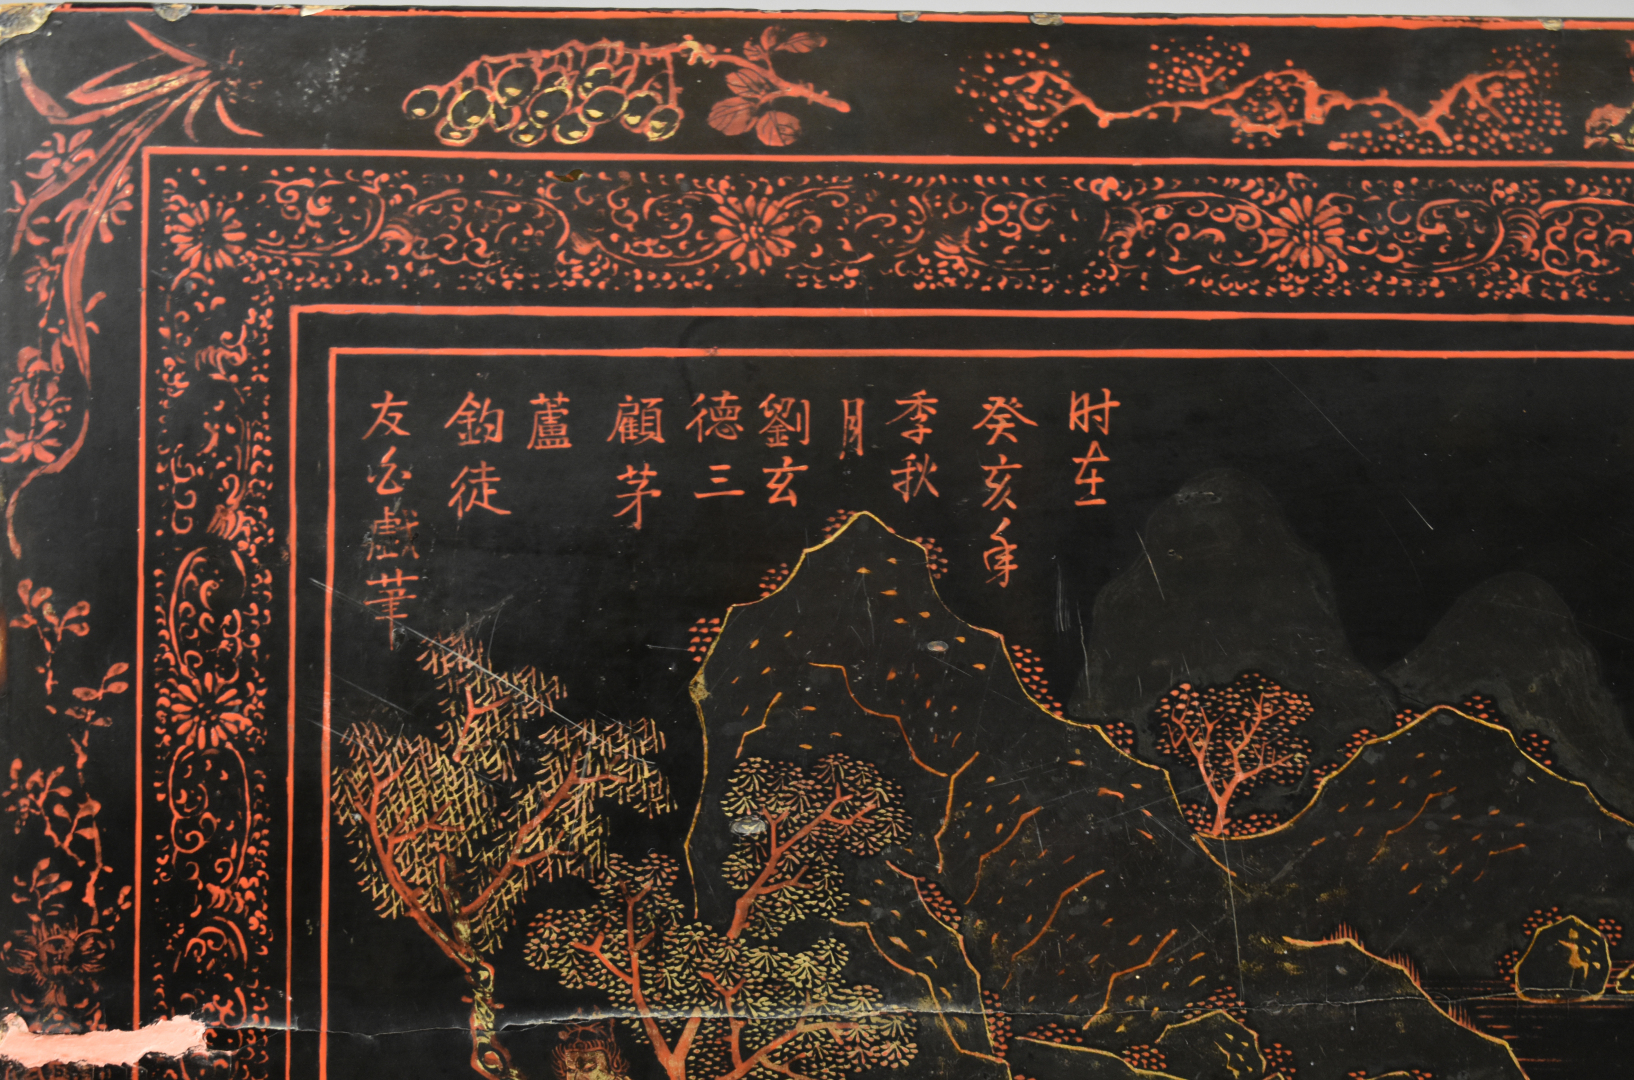 时在
癸亥年
季秋
月
劉玄
德三
顧茅
蘆
鈞徒
友台戲筆